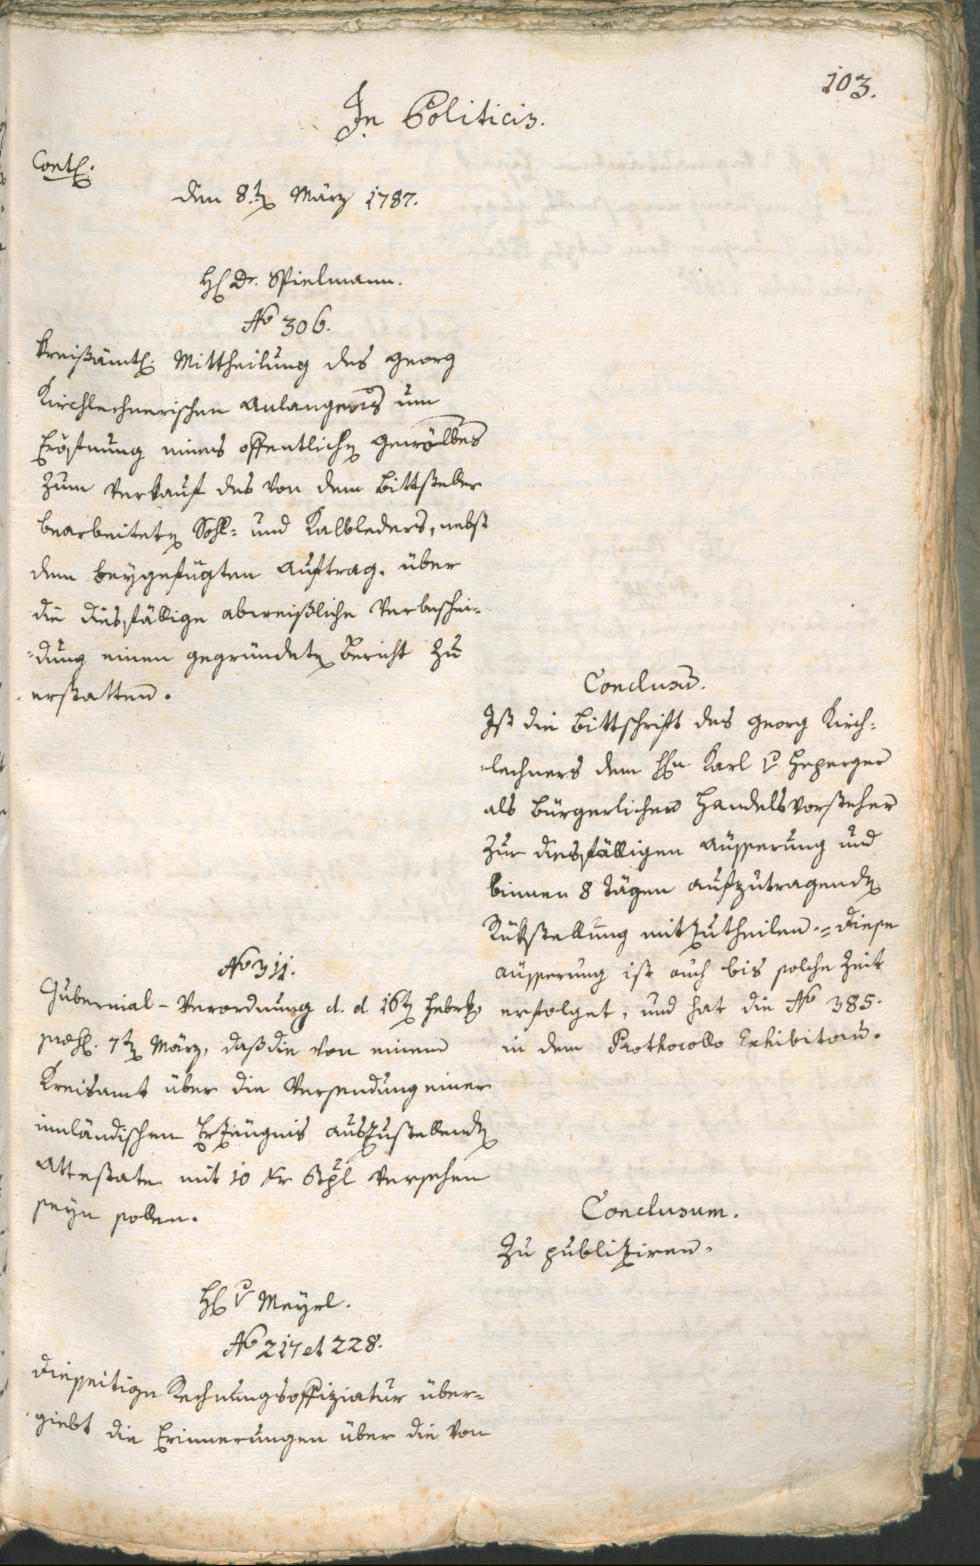 103.
In Politicis.
Contf.
den 8.t März 1787.
H Dr. Spielmann.
No 306.
Kreißämtl. Mittheilung des Georg
Kirchlechnerischen Anlangens um
Eröfnung eines offentlichen Gewölbes
zum Verkauf des von dem Bittsteller
bearbeiteten Sohl- und Kalbleders, nebst
dem beygefügten Auftrag, über
die diesfällige abweißliche Verbeschei-
-dung einen gegründeten Bericht zu
erstatten.
Conclusum.
Ist die Bittschrift des Georg Kirch-
-lechners dem Hn Karl v Heperger
als bürgerlichen Handelsvorsteher
zur diesfälligen Äusserung und
binnen 8 Tägen aufzutragenden
Rükstellung mitzutheilen. = Diese
Äusserung ist auch bis solche Zeit
erfolget, und hat die No 385.
in dem Prothocollo Exhibitorum.
No 311.
Gubernial-Verordnung d. d. 16ten
7ten März, daß die von einem
Kreisamt über die Versendung einer
innländischen Erzeugnis auszustellenden
Attestate mit 10 Kr Stpl versehen
seyn sollen.
Conclusum.
Zu publiziren.
H v Meyrl.
No 217 et 228.
Diesseitige Rechnungsoffiziatur über-
giebt die Erinnerungen über die von